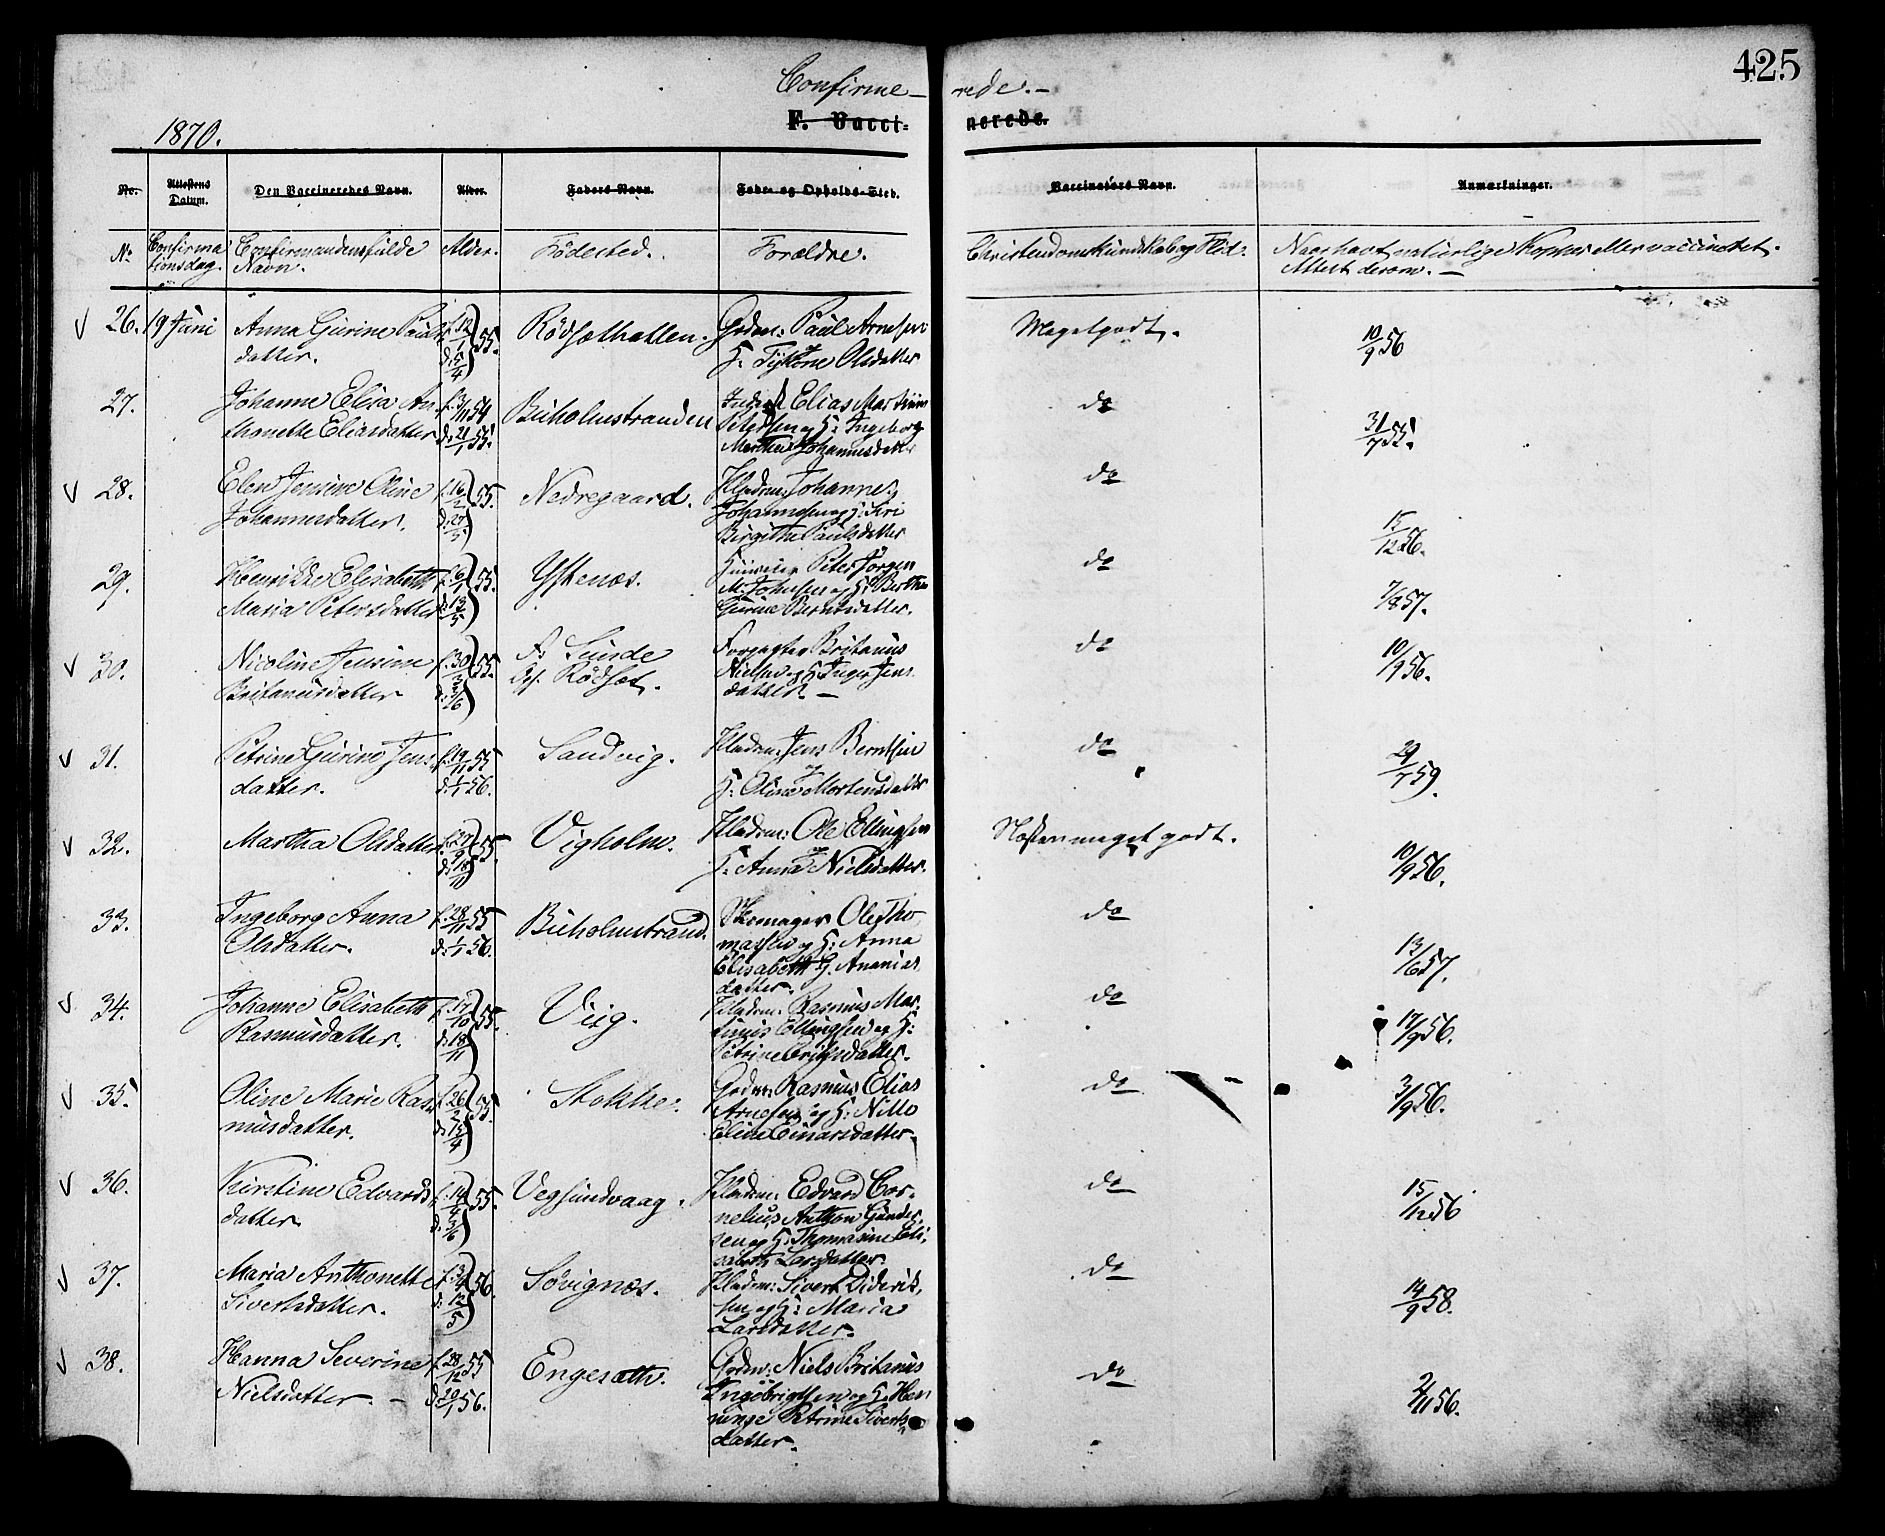 425
Confirme- rede.-
1870.
F. Vacci= nerede.
No. Attestens Datum. Den Vaccineredes Navn. Alder. Faders Navn. Føde- og Opholds-Sted. Vaccinateurs Navn. Anmærkninger.
No Confirma Confirmandens fulde Alder. Födested. Forældre. Christendomskundskab og Flid. Naar havt naturlige Kopper eller vaccineret.
tionsdag. Navn. Attest derom.-
26. 19 Juni Anna Gurine Pauls
datter. f. 12/1 d. 5/4 55. Rödsethatlen. Grdm: Paul Arnesen
og H: Olsdatter Meget godt. 10/9 56
27. Johanne Elisa An-
thonette Eliasdatter f. 3/11 54 d. 21/1 55. Buholmstranden Elias Martinus
Petersen og H: Ingeborg
Martha Johannesdatter do 31/7 55.
28. Elen Jensine Oline
Johannesdatter. f. 16/2 d. 27/5 55. Nedregaard. Johannes
Johannesen og H: Siri
Birgithe Paulsdatter do 15/12 56.
29. Henrikke Elisabeth
Maria Petersdatter f. 6/1 d. 13/5 55. Ystenæs. Peter Jörgen
M. Johnsen og H: Berthe
Gurine Berntsdatter. do 7/8 57.
30. Nicoline Jensine
Britanusdatter F: Sunde
Rödset. Forpagter Britanus
Nielsen og H: Inger Jens
datter.- do 10/9 56.
31. Petrine Gurine Jens
datter. f. 19/11 55 d. 1/1 56. Sandvig. Jens Berntsen
og H: Oline Mortensdatter do 29/7 59.
32. Martha Olsdatter f. 27/9 d. 18/11 55. Vigholm. Ole Ellingsen
og H: Anna Nielsdatter. Næsten meget godt. 10/9 56.
33. Ingeborg Anna
Olsdatter. f. 28/11 55 d. 1/1 56. Buholmstrand. Skomager Ole Tho-
massen og H: Anna
Elisabeth G. Ananias
datter. do 13/6 57.
34. Johanne Elisabeth
Rasmusdatter. f. 17/10 d. 18/11 55. Viig. Rasmus Mar-
tinus Ellingsen og H:
Petrine datter. do 17/9 56.
35. Oline Marie Ras-
musdatter. f. 26/2 d. 15/4 55. Stokke. Grdm: Rasmus Elias
Arnesen og H:
Eline Einarsdatter. do 3/9 56.
36. Kirstine Edvards
datter f. 14/4 d. 3/6 55. Vegsundvaag. Edvard Cor-
nelius Anthon Gunder
sen og H: Thomasine Eli-
sabeth Larsdatter. do 15/12 56
37. Maria Anthonette
Sivertsdatter. f. 3/4 d. 12/5 56. Sövignæs. Sivert Diderik-
sen og H: Maria
Larsdatter. do 14/9 58.
38. Hanna Severine
Nielsdatter.- f. 28/12 55 d. 20/1 56. Engesæth. Grdm: Niels Britanus
Ingebrigtsen og H: Hen
ninge Petrine Siverts
datter. do 2/11 56.